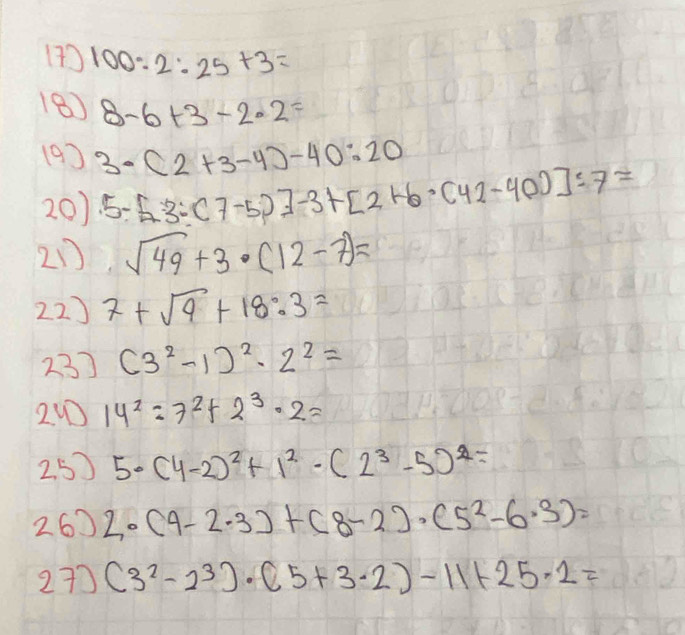 17) 100:2:25+3=
18) 8-6+3-2·2=
19) 3·(2+3-4)-40:20
20) 5-[3:(7-5)]-3+[2+6·(42-40)]:7=
21) √49+3·(12-7)=
22) 7+√9+18:3=
23) (3²-1)²·2²=
24) 14²:7²+2³·2=
25) 5·(4-2)²+1²-(2³-5)²=
26) 2·(9-2·3)+(8-2)·(5²-6·3)=
27) (3²-2³)·(5+3·2)-11+25·2=